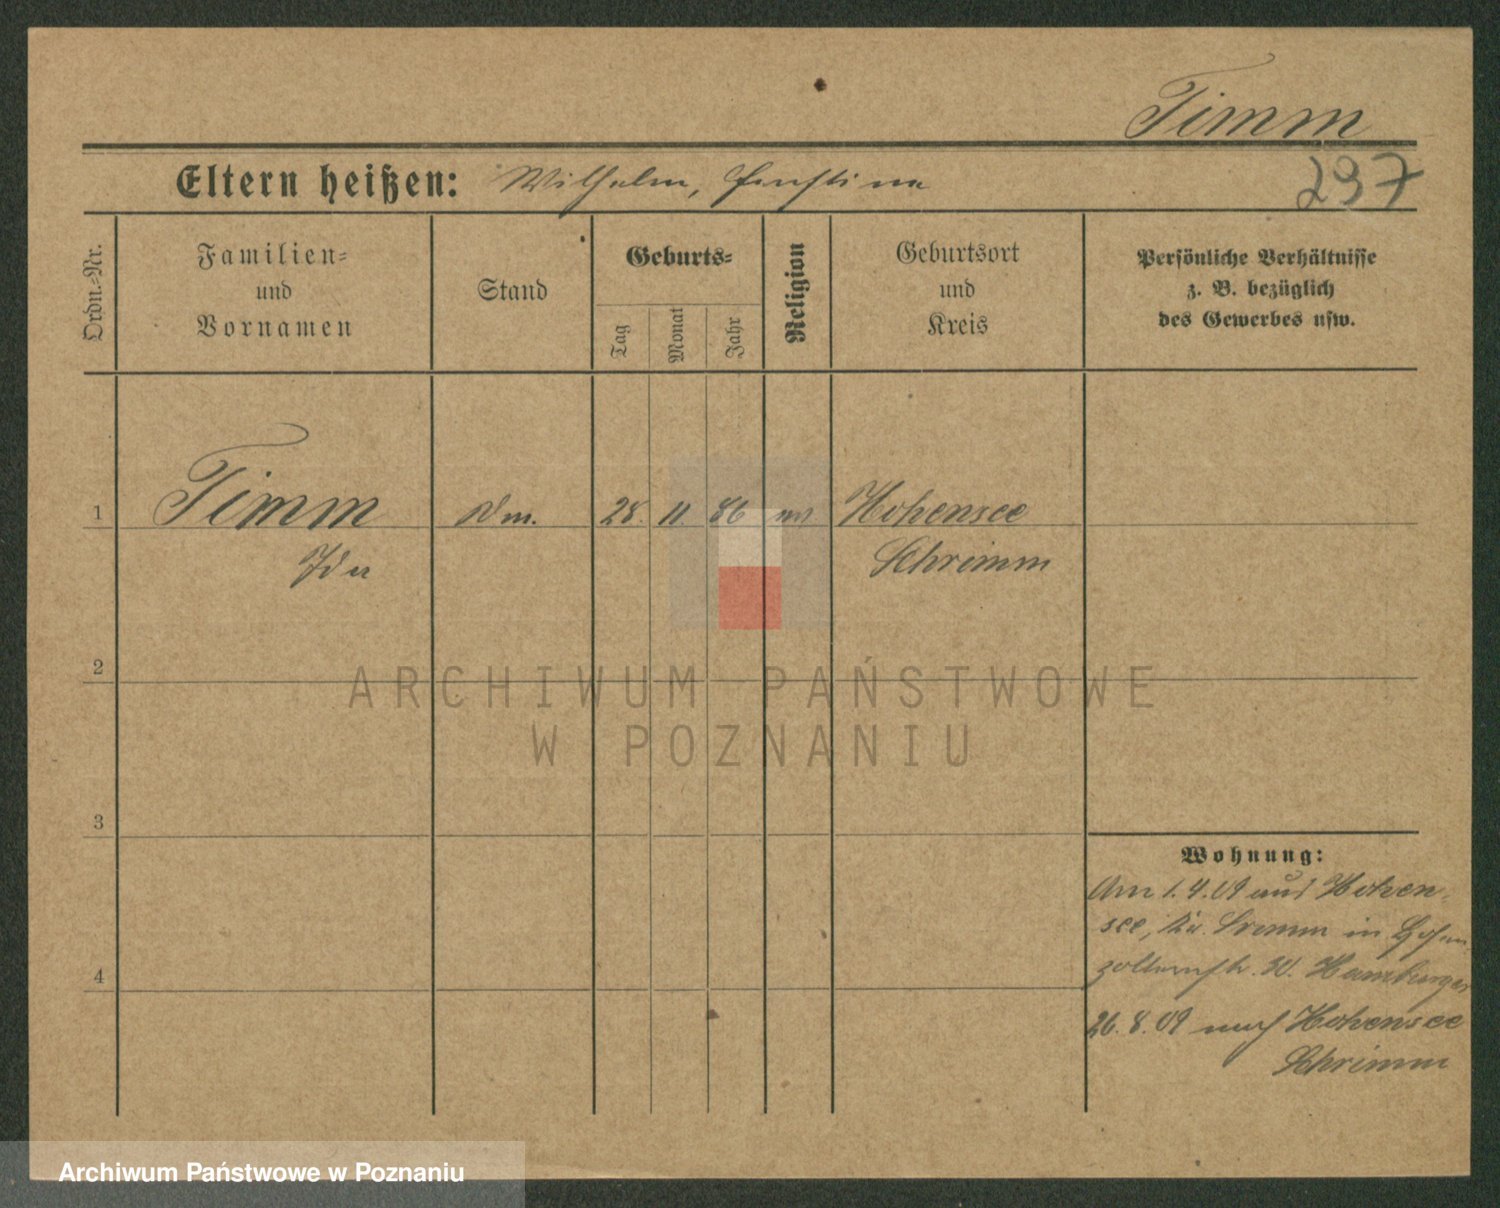 Timm
Eltern heißen: Wilhelm,
237
Ordn.-Nr.
Familien-
und
Vornamen
Stand
Geburts-
Tag
Monat
Jahr
Religion
Geburtsort
und
Kreis
Persönliche Verhältnisse
z. B. bezüglich
des Gewerbes usw.
1 Timm 28. 11 86 Hohensee
Ida Schrimm
2
ARCHIWUM PAŃSTWOWE
W POZNANIU
3
Wohnung:
Am 1.4.09 aus Hohen-
see, Kr. in Hohen
zollernstr. W. Hamburger
4
26.8.09 nach Hohensee
Schrimm
Archiwum Państwowe w Poznaniu